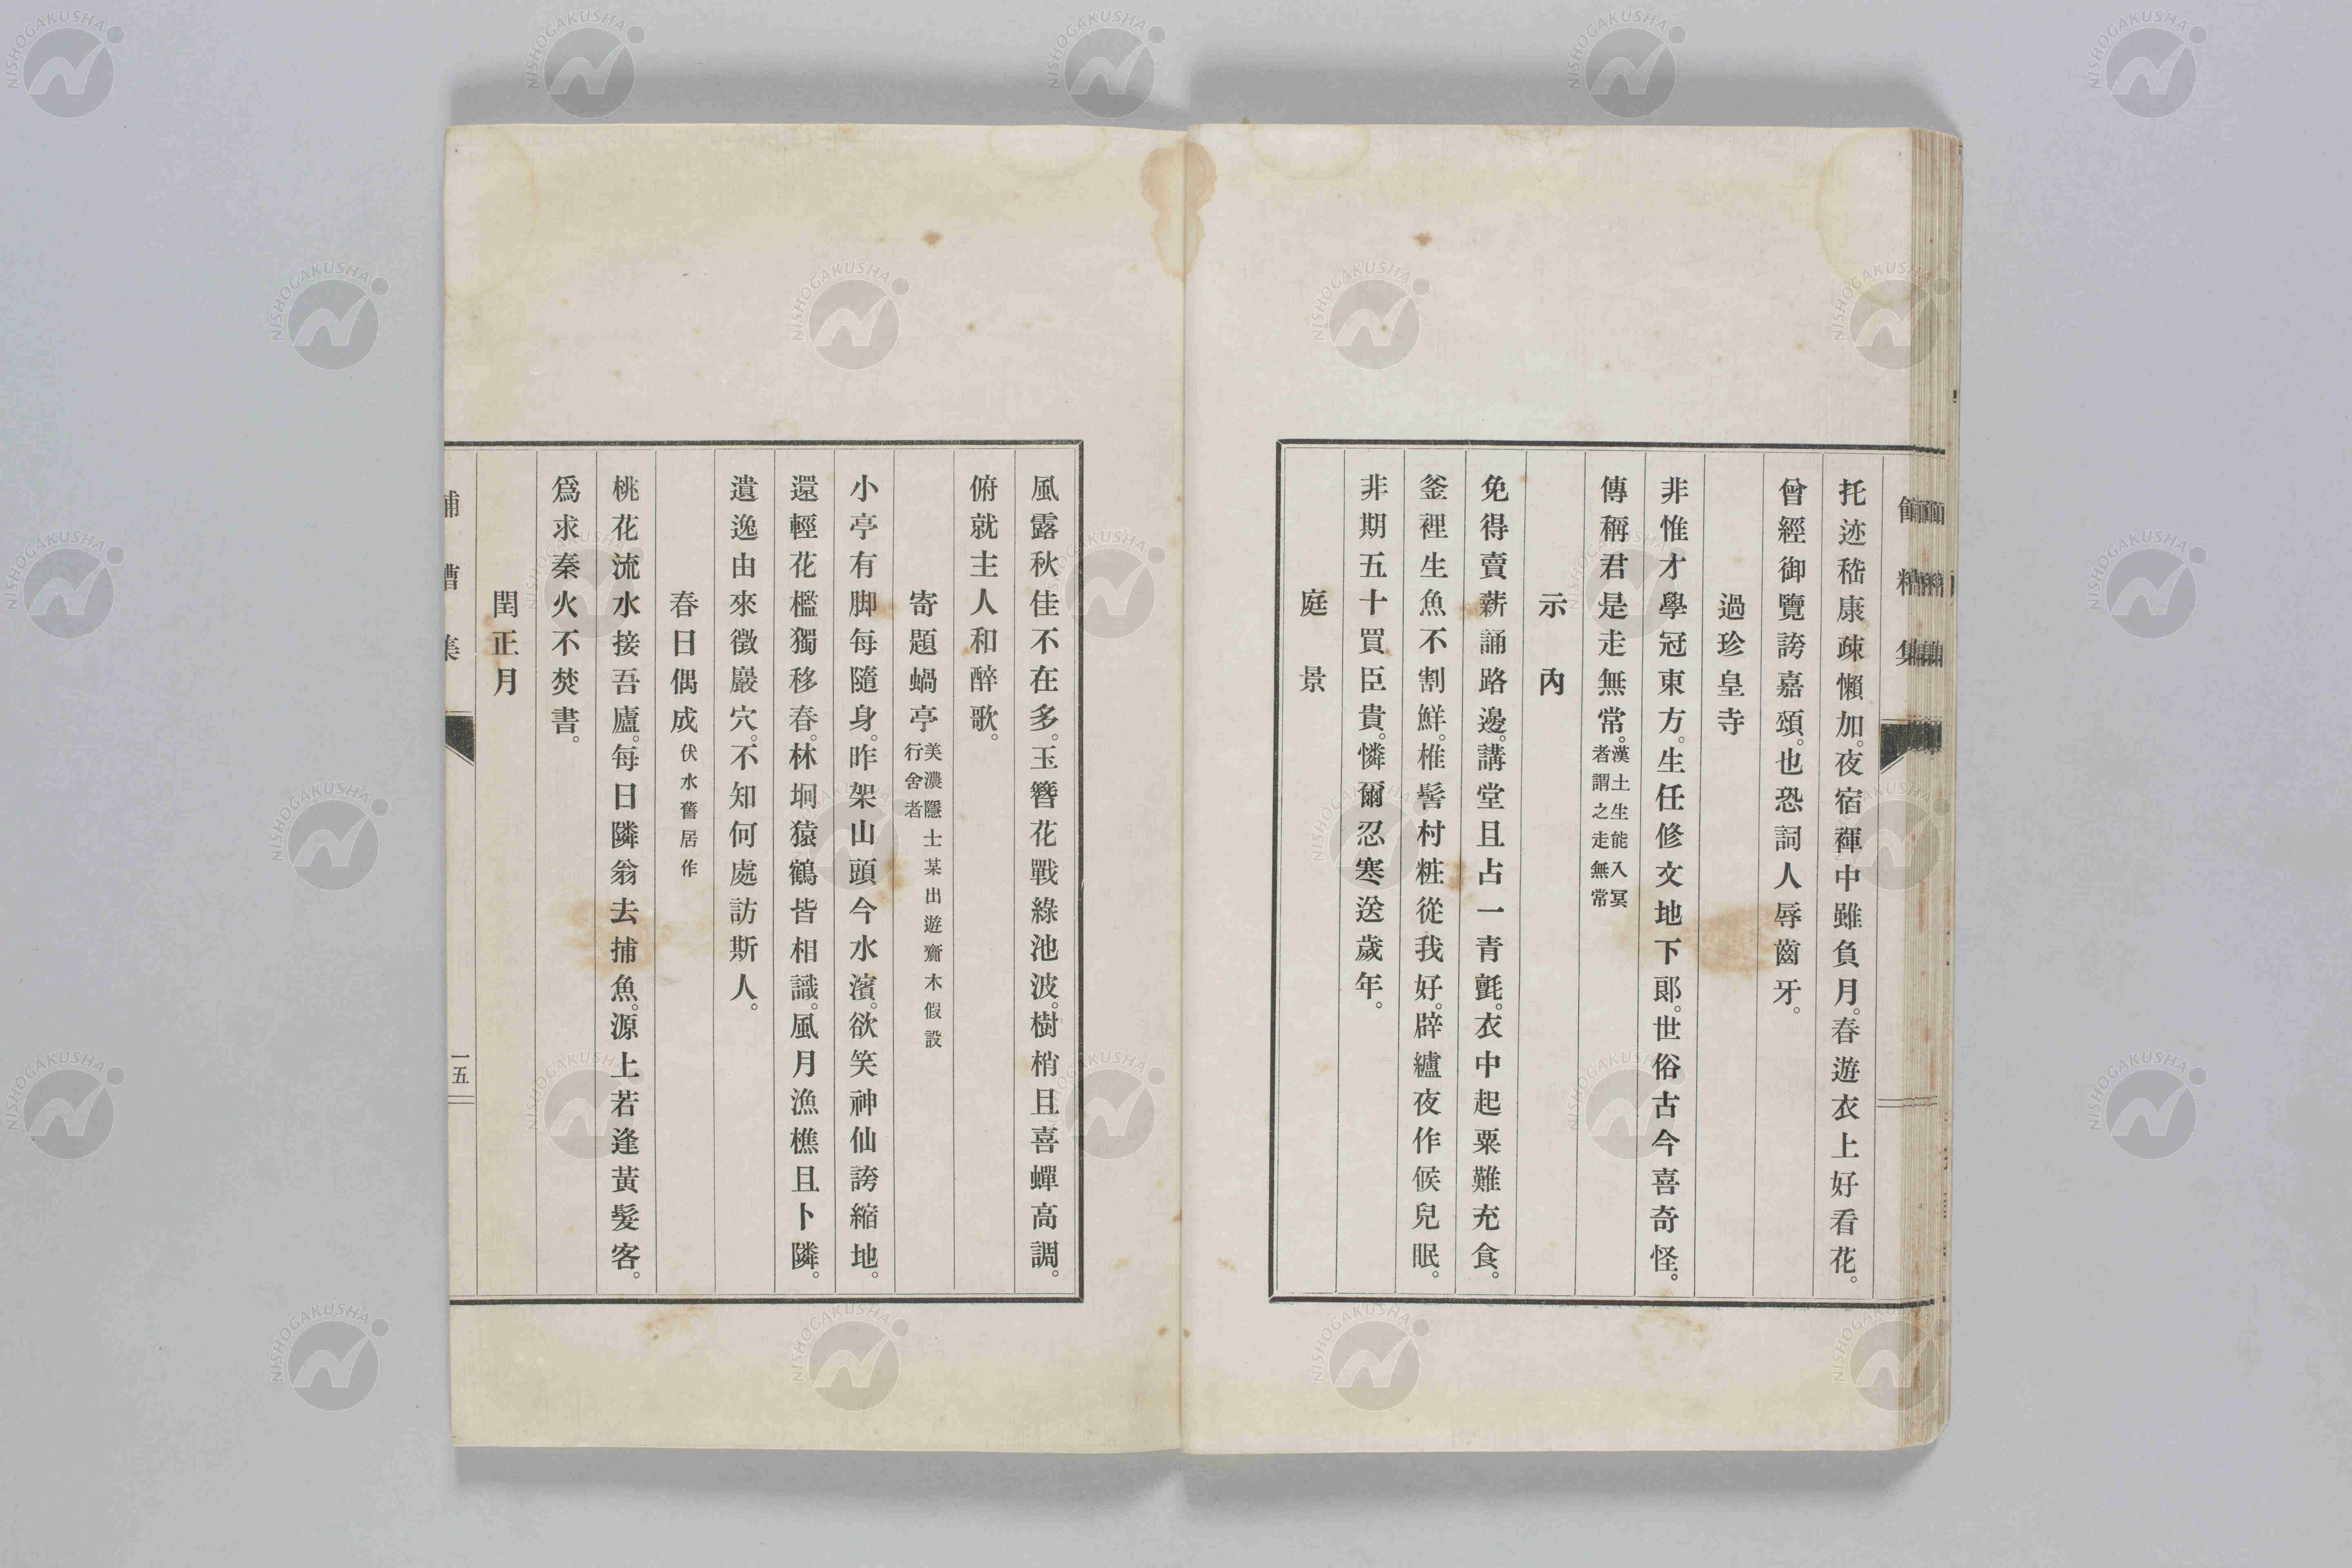 餔糟集
托迹嵇康疎懶加。夜宿褌中雖負月。春遊衣上好看花。
曾經御覽誇嘉頌。也恐詞人辱齒牙。
過珍皇寺
非惟才學冠東方。生任修文地下郞。世俗古今喜奇怪。
傳稱君是走無常。漢土生能入冥者謂之走無常
示內
免得賣薪誦路邊。講堂且占一青氈。衣中起粟難充食。
釜裡生魚不割鮮。椎髻村粧從我好。辟纑夜作候兒眠。
非期五十買臣貴。憐爾忍寒送歲年。
庭景
風露秋佳不在多。玉簪花戰綠池波。樹梢且喜蟬高調。
俯就主人和醉歌。
寄題蝸亭 美濃隱士某出遊齎木假設行舍者
小亭有脚每隨身。昨架山頭今水濱。欲笑神仙誇縮地。
還輕花檻獨移春。林坰猿鶴皆相識。風月漁樵且卜隣。
遺逸由來徵巖穴。不知何處訪斯人。
春日偶成 伏水舊居作
桃花流水接吾廬。每日隣翁去捕魚。源上若逢黃髮客。
爲求秦火不焚書。
閏正月
餔糟集
一五
NISHOGAKUSHA